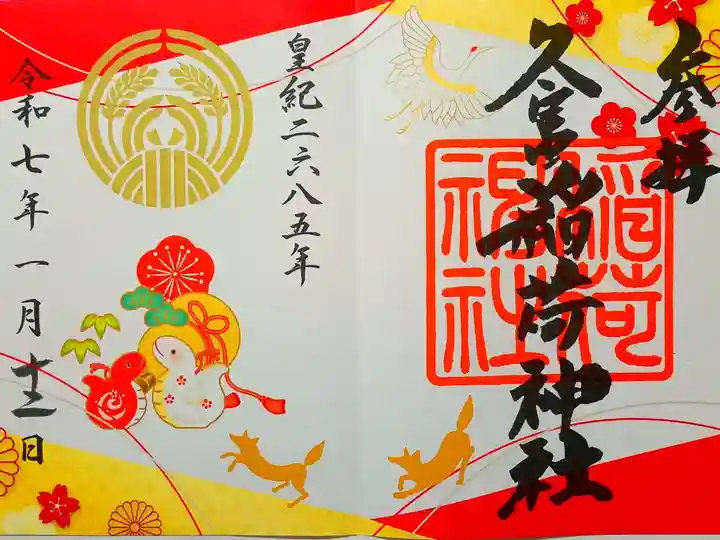 参拝
久富稲荷神社
稲荷
神社
皇紀二六八五年
令和七年一月十二日